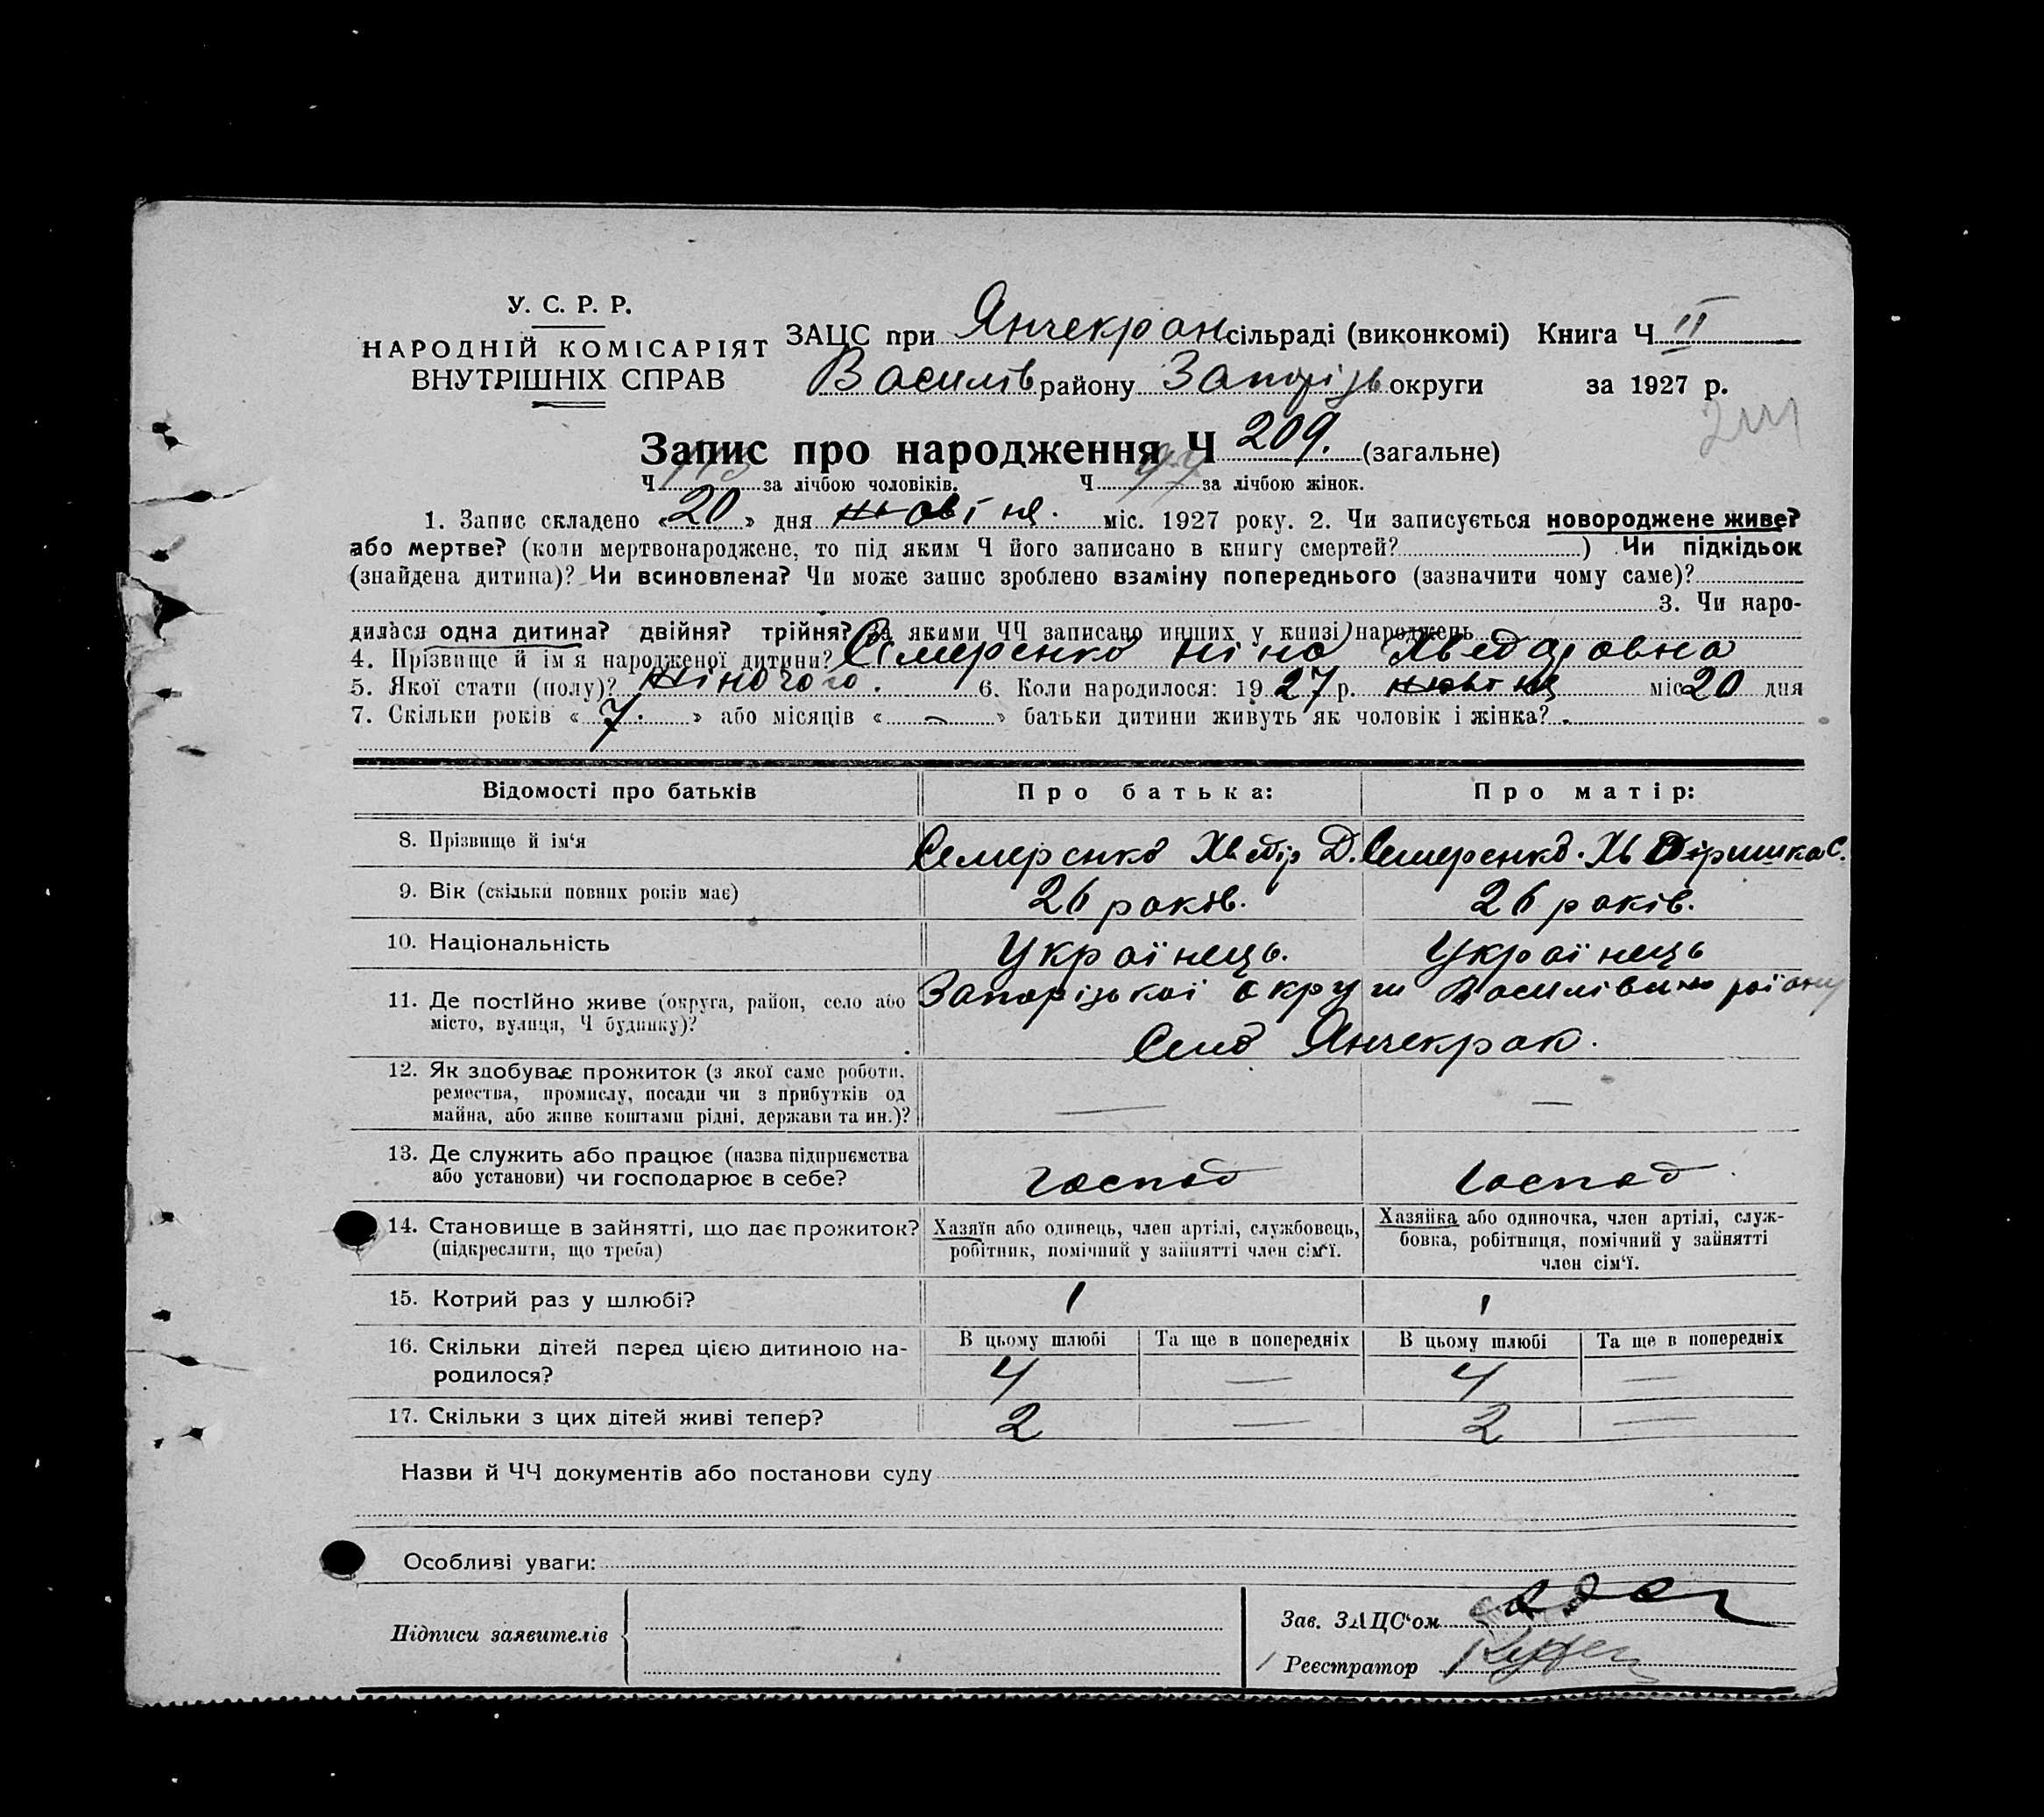 У. С. Р. Р.
НАРОДНІЙ КОМІСАРІЯТ
ВНУТРІШНІХ СПРАВ
ЗАЦС при Янчекрак сільраді (виконкомі) Книга Ч II
Василів району Запоріз округи за 1927 р.
Запис про народження Ч 209. (загальне)
Ч за лічбою чоловіків. Ч за лічбою жінок.
1. Запис складено «20» дня жовтня. міс. 1927 року. 2. Чи записується новороджене живе?
або мертве? (коли мертвонароджене, то під яким Ч його записано в книгу смертей?) Чи підкідьок
(знайдена дитина)? Чи всиновлена? Чи може запис зроблено взаміну попереднього (зазначити чому саме)?
3. Чи наро-
дилася одна дитина? двійня? трійня? За якими ЧЧ записано инших у книзі народжень
4. Прізвище й ім'я народженої дитини? Семеренко Ніна Хведоровна
5. Якої стати (полу)? жіночого. 6. Коли народилося: 1927 р. жовтня міс 20 дня
7. Скільки років «7.» або місяців «—» батьки дитини живуть як чоловік і жінка?
Відомості про батьків Про батька: Про матір:
8. Прізвище й ім'я Семеренко Хведір Д. Семеренко С.
9. Вік (скільки повних років має) 26 років. 26 років.
10. Національність Українець. Українець
11. Де постійно живе (округа, район, село або
місто, вулиця, Ч будинку)?
Запорізької округи Василівського району
Село Янчекрак.
12. Як здобуває прожиток (з якої саме роботи,
ремества, промислу, посади чи з прибутків од
майна, або живе коштами рідні, держави та ин.)? — —
13. Де служить або працює (назва підприємства
або установи) чи господарює в себе? господ господ
14. Становище в зайнятті, що дає прожиток?
(підкреслити, що треба)
Хазяїн або одинець, член артілі, службовець,
робітник, помічний у зайнятті член сім'ї.
Хазяйка або одиночка, член артілі, служ-
бовка, робітниця, помічний у зайнятті
член сім'ї.
15. Котрий раз у шлюбі? 1 1
В цьому шлюбі Та ще в попередніх В цьому шлюбі Та ще в попередніх
16. Скільки дітей перед цією дитиною на-
родилося? 4 — 4 —
17. Скільки з цих дітей живі тепер? 2 — 2 —
Назви й ЧЧ документів або постанови суду
Особливі уваги:
Підписи заявителів
Зав. ЗАЦС'ом
Реєстратор